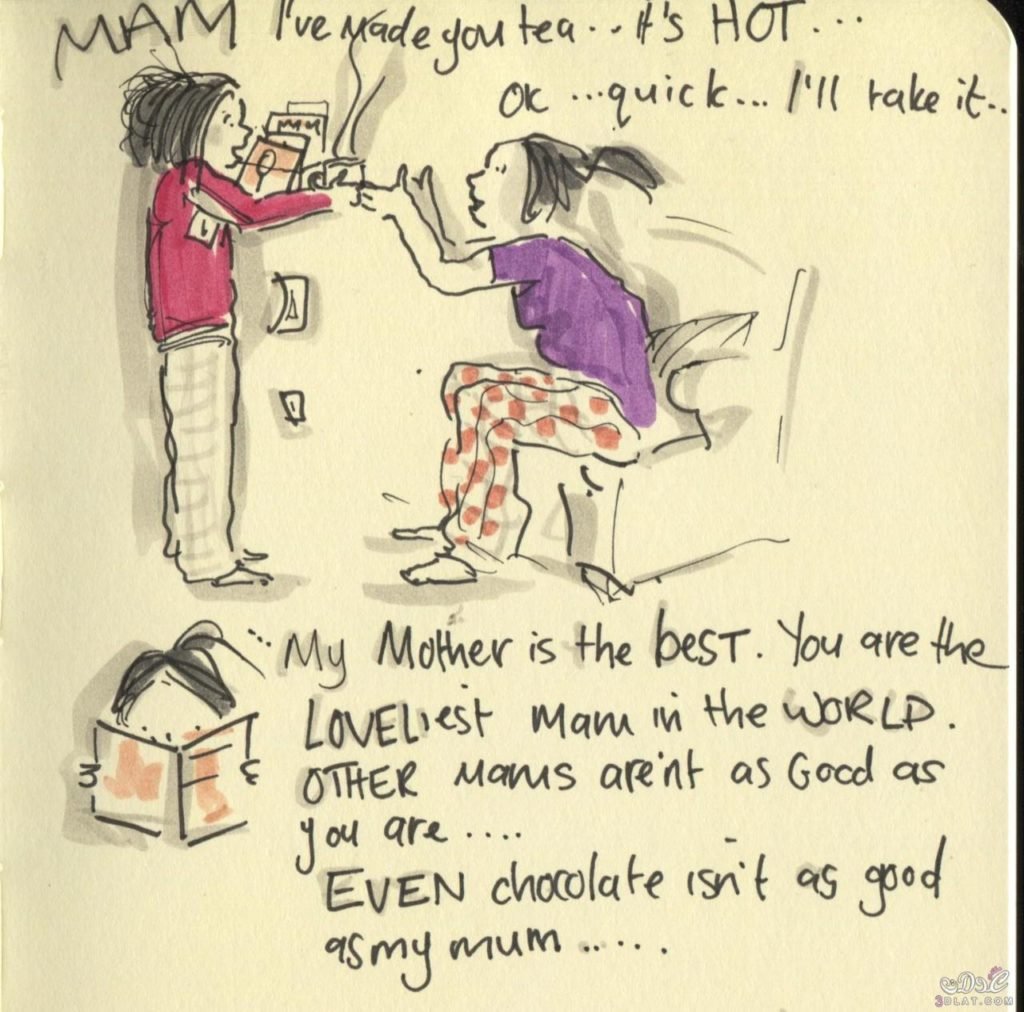 MAM I've made you tea.. it's HOT...
OK ...quick... I'll take it..
...My Mother is the best. You are the
LOVELiest Mam in the WORLD.
OTHER Mams are'nt as Good as
you are ....
EVEN chocolate isn't as good
as my mum ......
3DLAT.COM